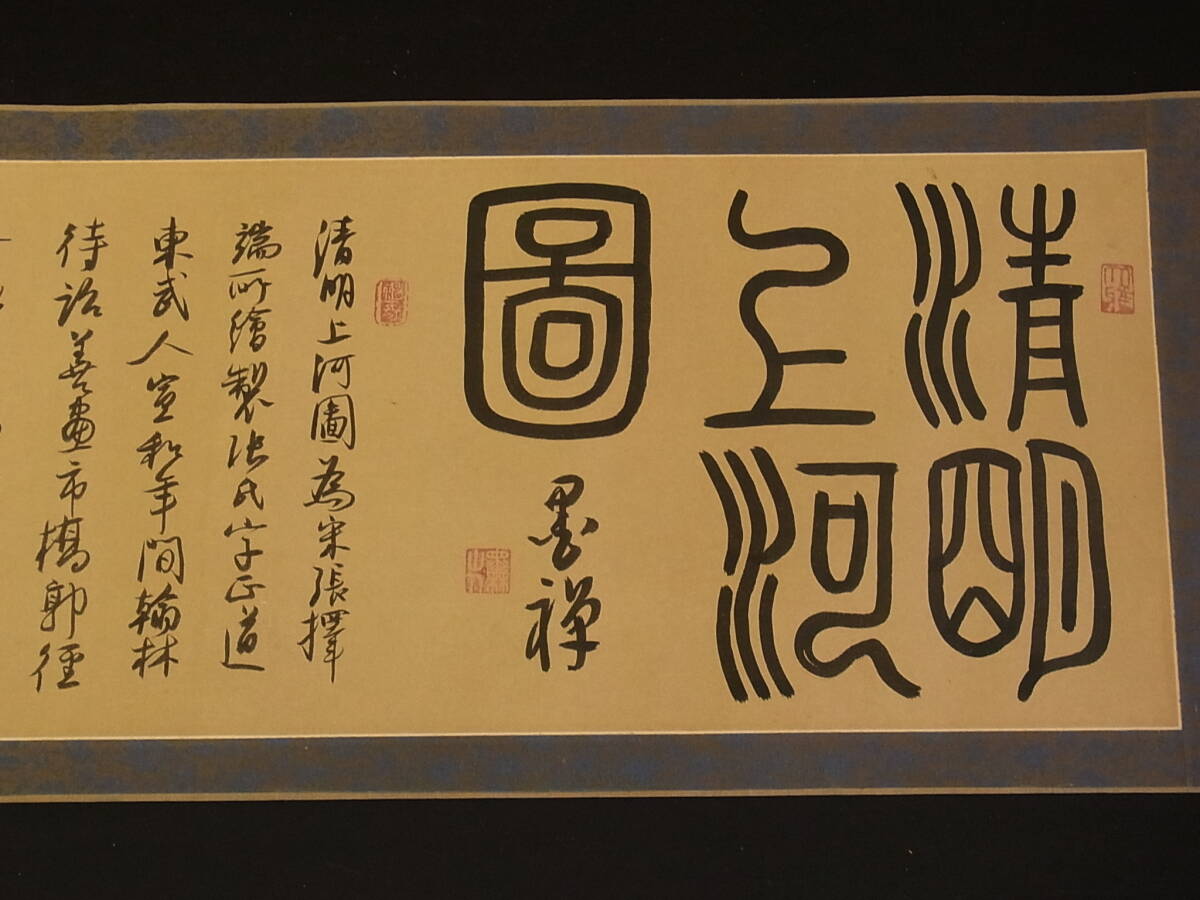 清明
上河
圖
墨禅
清明上河圖為宋張擇
端所繪製張氏字正道
東武人宣和年間翰林
待詔善畫市橋郭徑